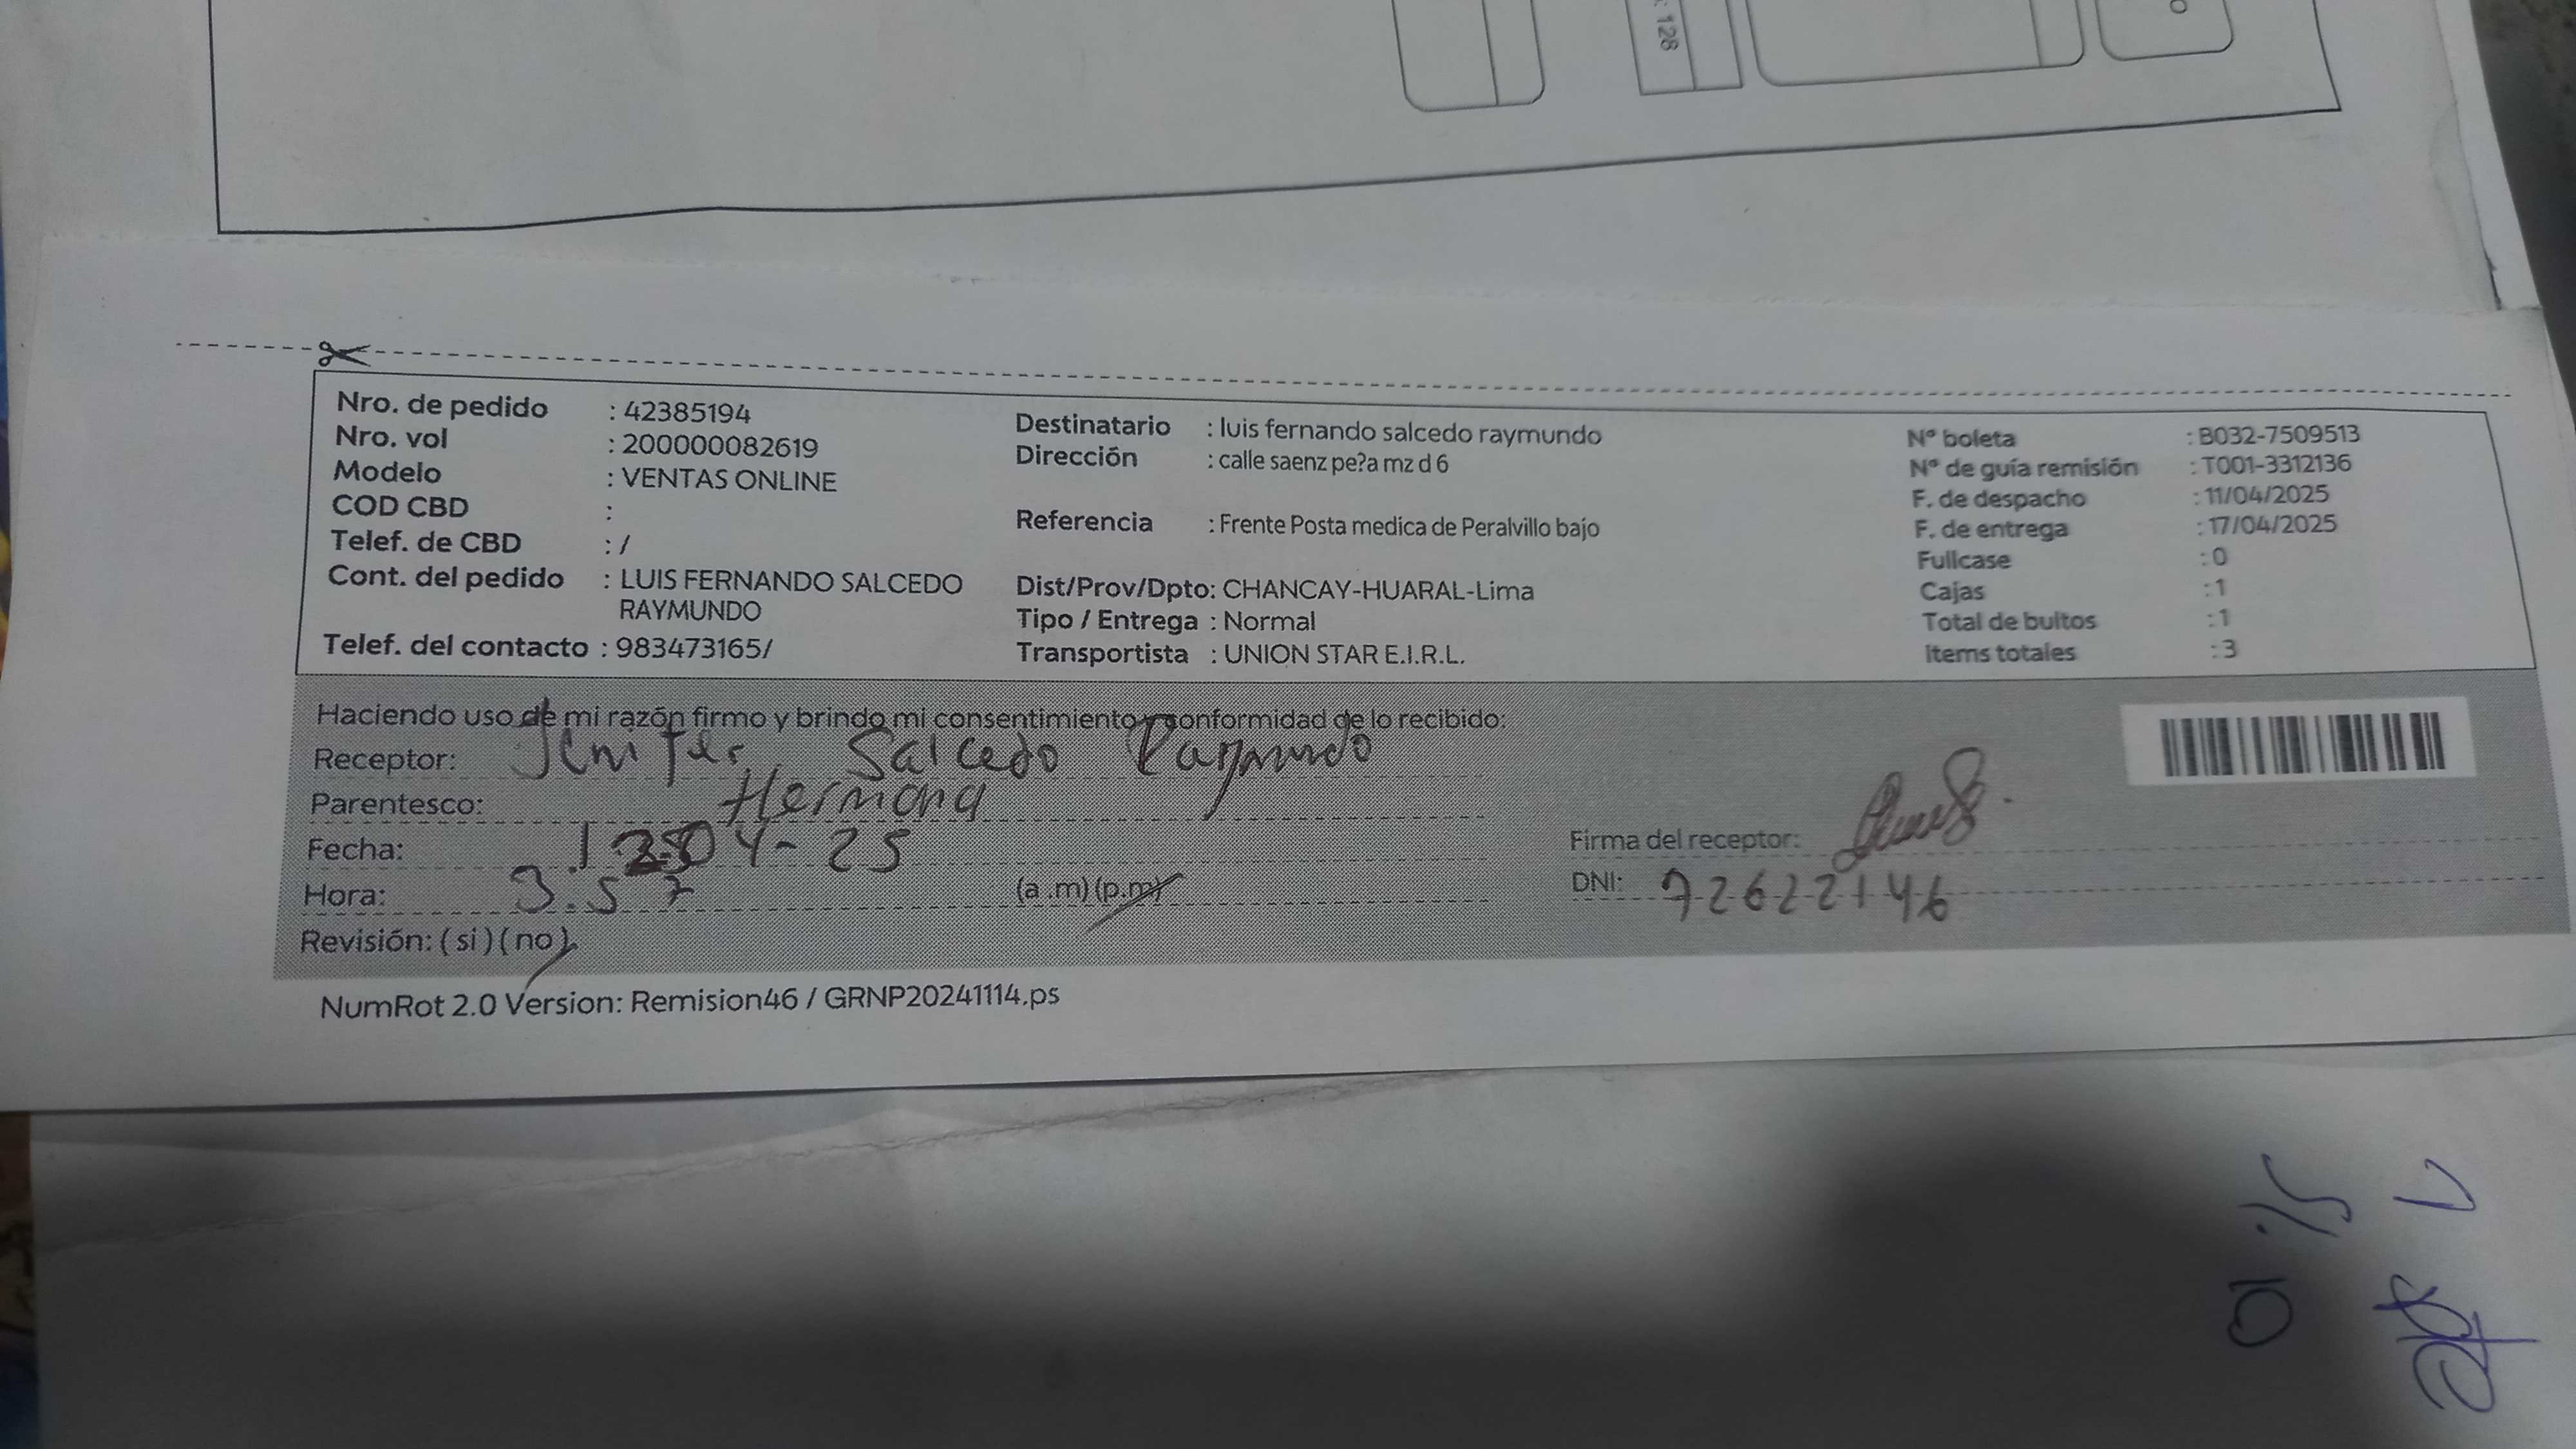 128
Nro. de pedido : 42385194
Nro. vol : 200000082619
Modelo : VENTAS ONLINE
COD CBD :
Telef. de CBD : /
Cont. del pedido : LUIS FERNANDO SALCEDO
RAYMUNDO
Telef. del contacto : 983473165/
Destinatario : luis fernando salcedo raymundo
Dirección : calle saenz pe?a mz d 6
Referencia : Frente Posta medica de Peralvillo bajo
Dist/Prov/Dpto: CHANCAY-HUARAL-Lima
Tipo / Entrega : Normal
Transportista : UNION STAR E.I.R.L.
Nº boleta : B032-7509513
Nº de guía remisión : T001-3312136
F. de despacho : 11/04/2025
F. de entrega : 17/04/2025
Fullcase : 0
Cajas : 1
Total de bultos : 1
Items totales : 3
Haciendo uso de mi razón firmo y brindo mi consentimiento y conformidad de lo recibido:
Receptor: Jenifer Salcedo Raymundo
Parentesco: Hermana
Fecha: 04-25
Hora: 3.57 (a.m)(p.m)
Revisión: (si)(no)
Firma del receptor:
DNI: 72622146
NumRot 2.0 Version: Remision46 / GRNP20241114.ps